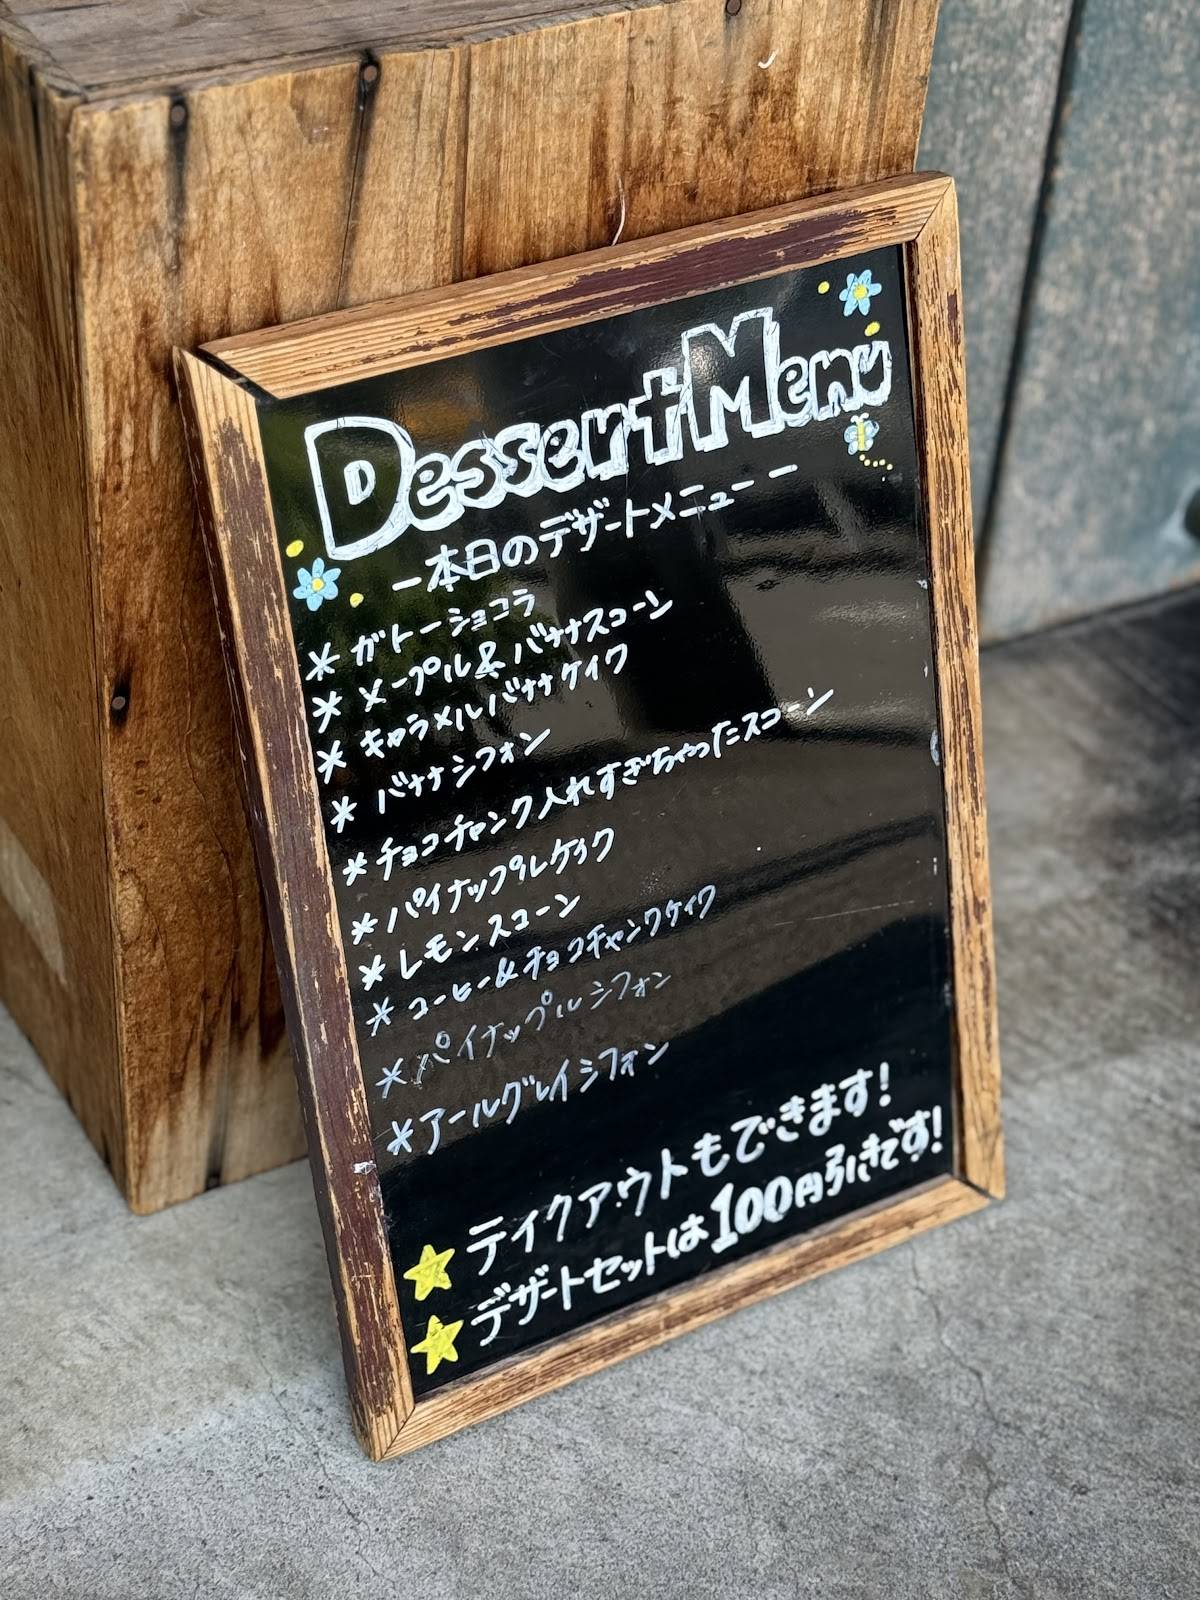 Dessert Menu
ー本日のデザートメニューー
* ガトーショコラ
* メープル&バナナスコーン
* キャラメルバナナケイク
* バナナシフォン
* チョコチャンク入れすぎちゃったスコーン
* パイナップルケイク
* レモンスコーン
* コーヒー&チョコチャンクケイク
* パイナップルシフォン
* アールグレイシフォン
★ テイクアウトもできます!
★ デザートセットは100円引きです!